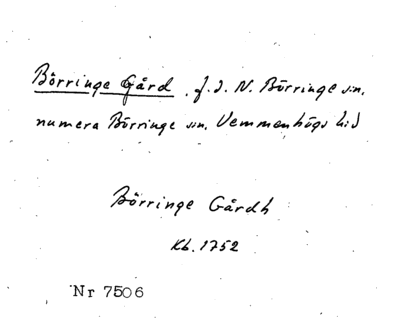 Börringe Gård. f.d. N. Börringe sn.
numera Börringe sn. Vemmenhögs hd
Börringe Gårdh
Kb. 1752
Nr 7506